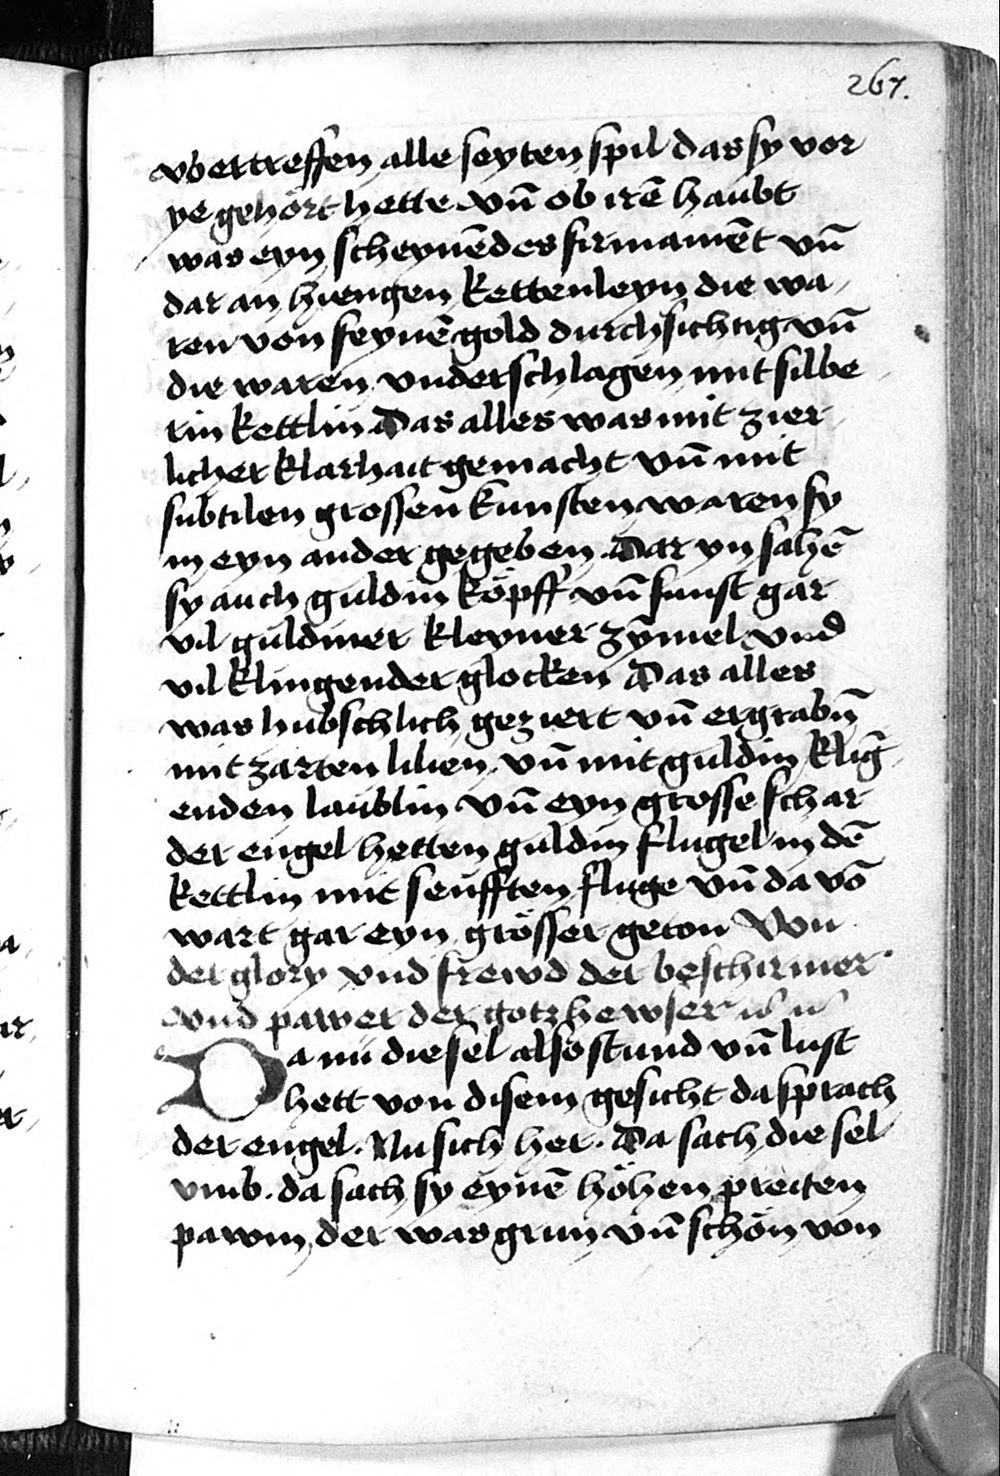 267.
vbertreffen alle seyten spil das sy vor
ye gehört hette vn̄ ob irē haubt
was eyn scheynēdes firmamēt vn̄
dar an hiengen kettenleyn die wa-
ren von feynē gold durchsichtig vn̄
die waren vnderschlagen mit silbe-
rin kettlin Das alles was mit zier
licher klarhait gemacht vn̄ mit
subtilen grossen kunsten waren sy
in eyn ander gegeben. Dar yn sahē
sy auch guldin köpff vn̄ sunst gar
vil guldiner kleyner zymel vnd
vil klingender glocken Das alles
was hubschlich geziert vn̄ ergrabn̄
mit zarten lilien vn̄ mit guldin kling
enden laublin vn̄ eyn grosse schar
der engel hetten guldin flugel in dē
kettlin mit senfften fluge vn̄ da vō
wart gar eyn grösser geton Von
der glory vnd frewd der beschirmer
vnd pawer der gotzhewser
Da nu die sel also stund vn̄ lust
hett von disem gesicht da sprach
der engel. Nu sich her. Da sach die sel
vmb. da sach sy eynē höhen preiten
pawm, der was grun vn̄ schön von